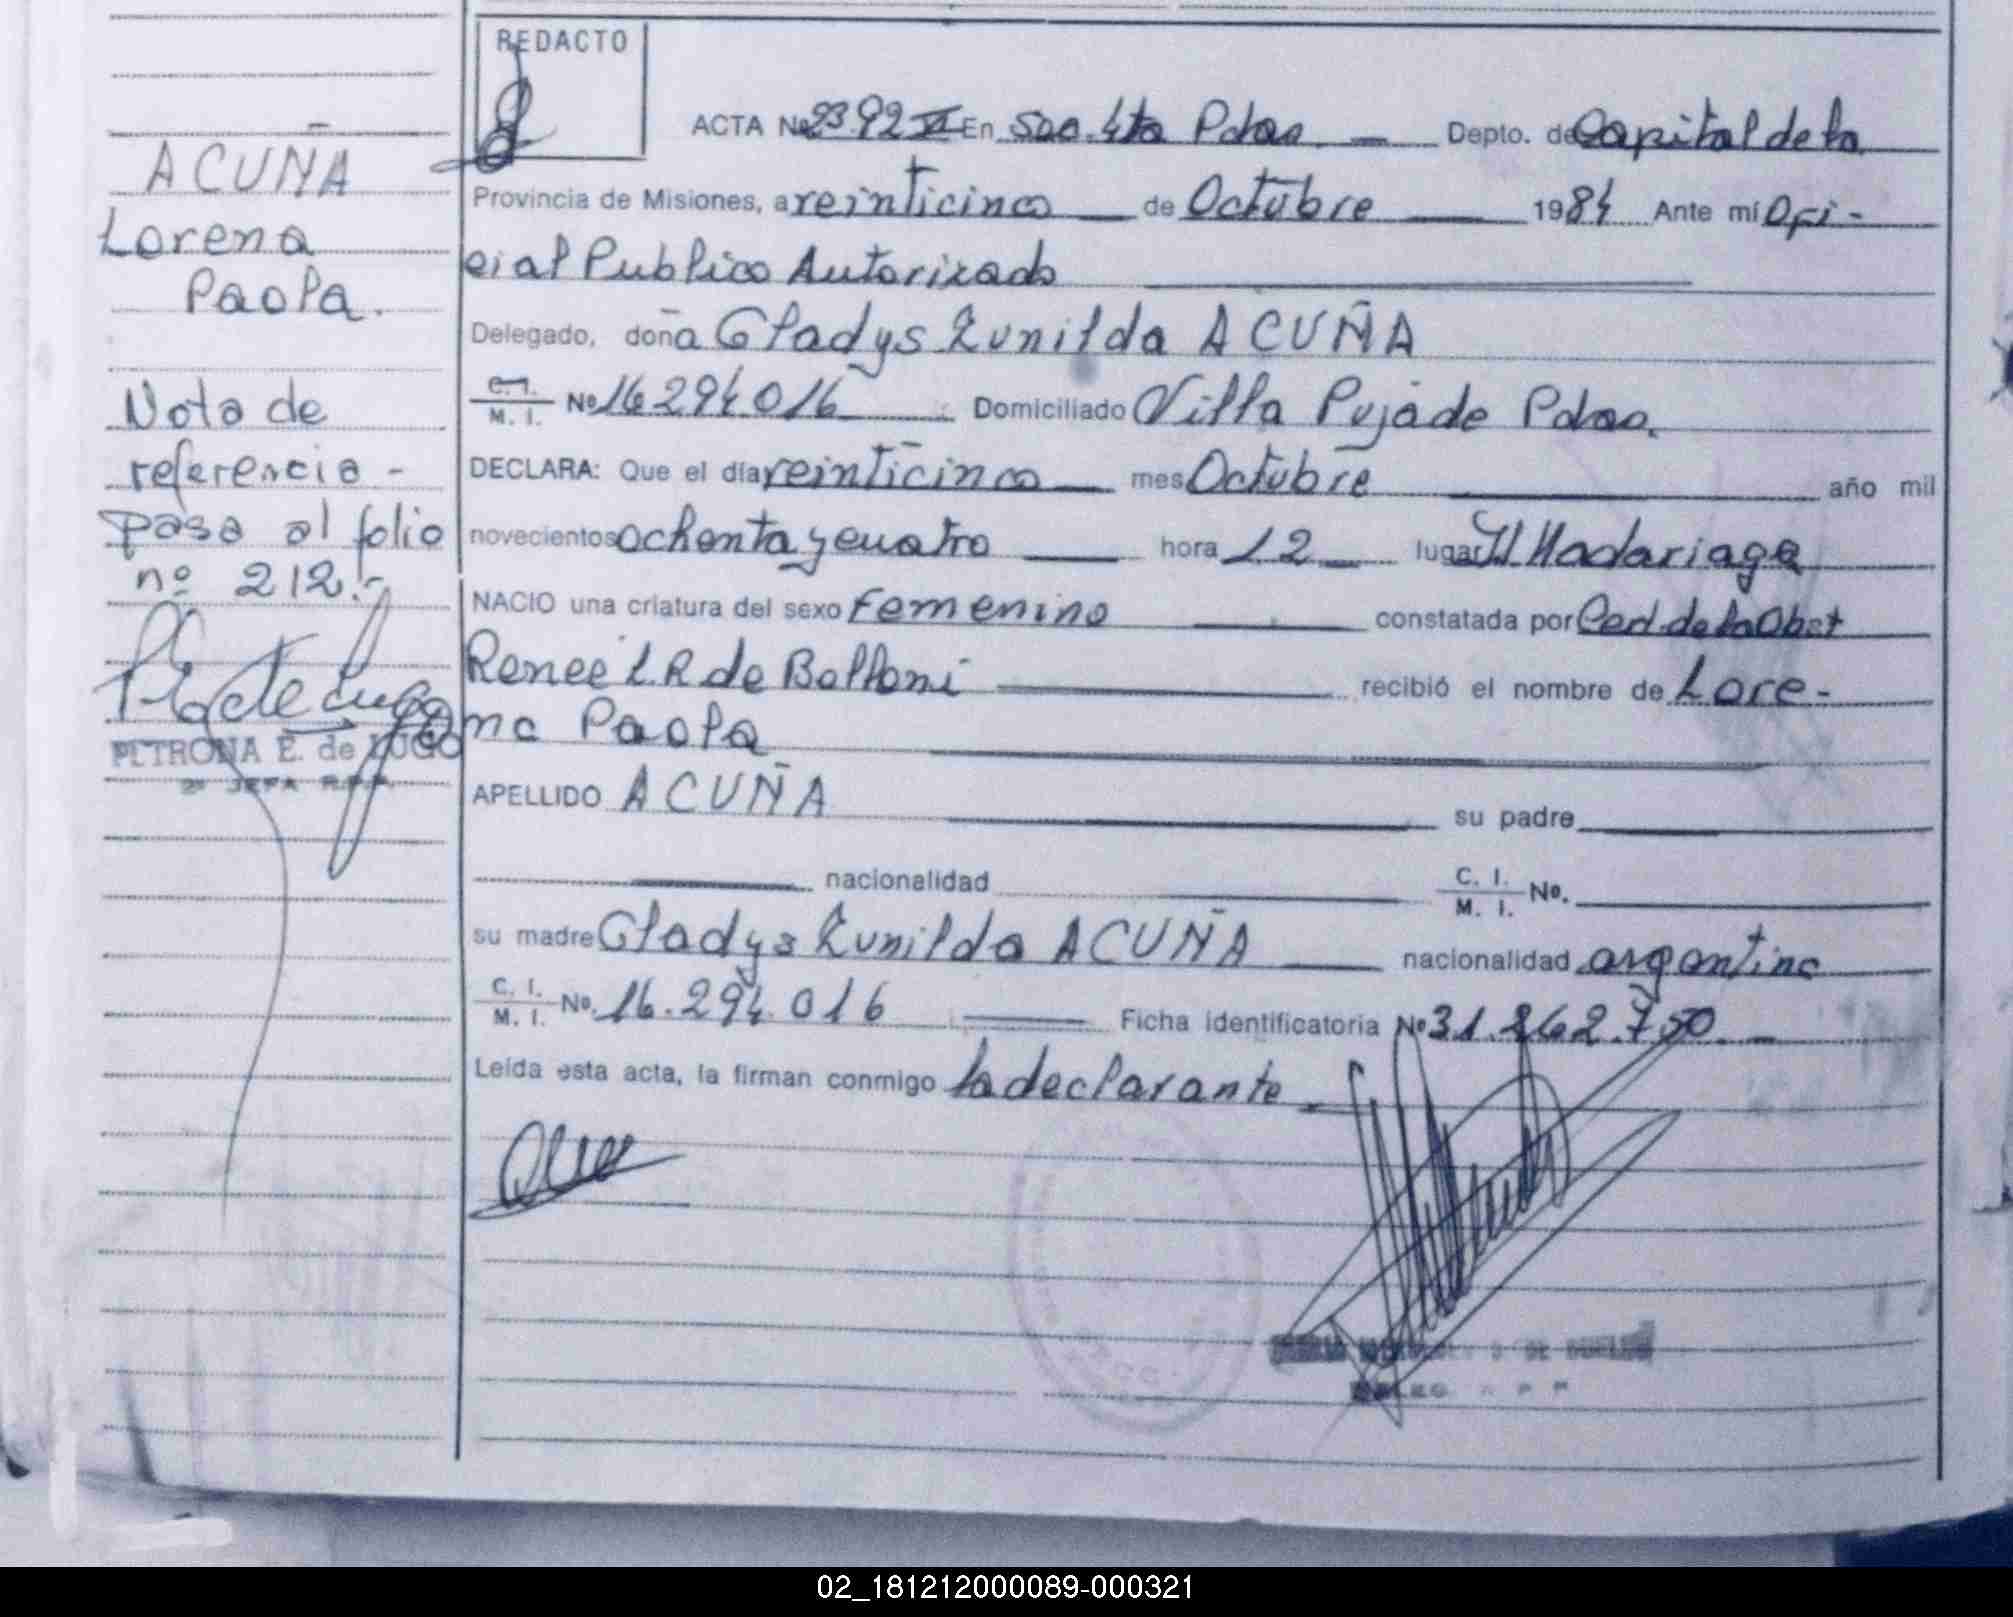 REDACTO
ACTA Nº 2392 VI En Sec. 4ta Pdas. — Depto. de Capital de la
Provincia de Misiones, a veinticinco — de Octubre — 1984 Ante mí Ofi-
cial Publico Autorizado
Delegado, doña Gladys Zunilda ACUÑA
C. I.
M. I. Nº 16294016 Domiciliado Villa Pujade Pdas.
DECLARA: Que el día veinticinco — mes Octubre — año mil
novecientos ochenta y cuatro — hora 12 — lugar H. Madariaga
NACIO una criatura del sexo Femenino — constatada por Cert. de la Obst
Renee L. R de Bolloni — recibió el nombre de Lore-
na Paola
APELLIDO ACUÑA — su padre —
— nacionalidad — C. I.
M. I. Nº. —
su madre Gladys Zunilda ACUÑA — nacionalidad argentina
C. I.
M. I. Nº. 16.294.016 — Ficha identificatoria Nº 31.262.750. —
Leída esta acta, la firman conmigo la declarante
ACUÑA
Lorena
Paola.
Nota de
referencia -
pasa al folio
nº 212.-
PETRONA E. de LUGO
2ª JEFA R.P.P.
02_181212000089-000321